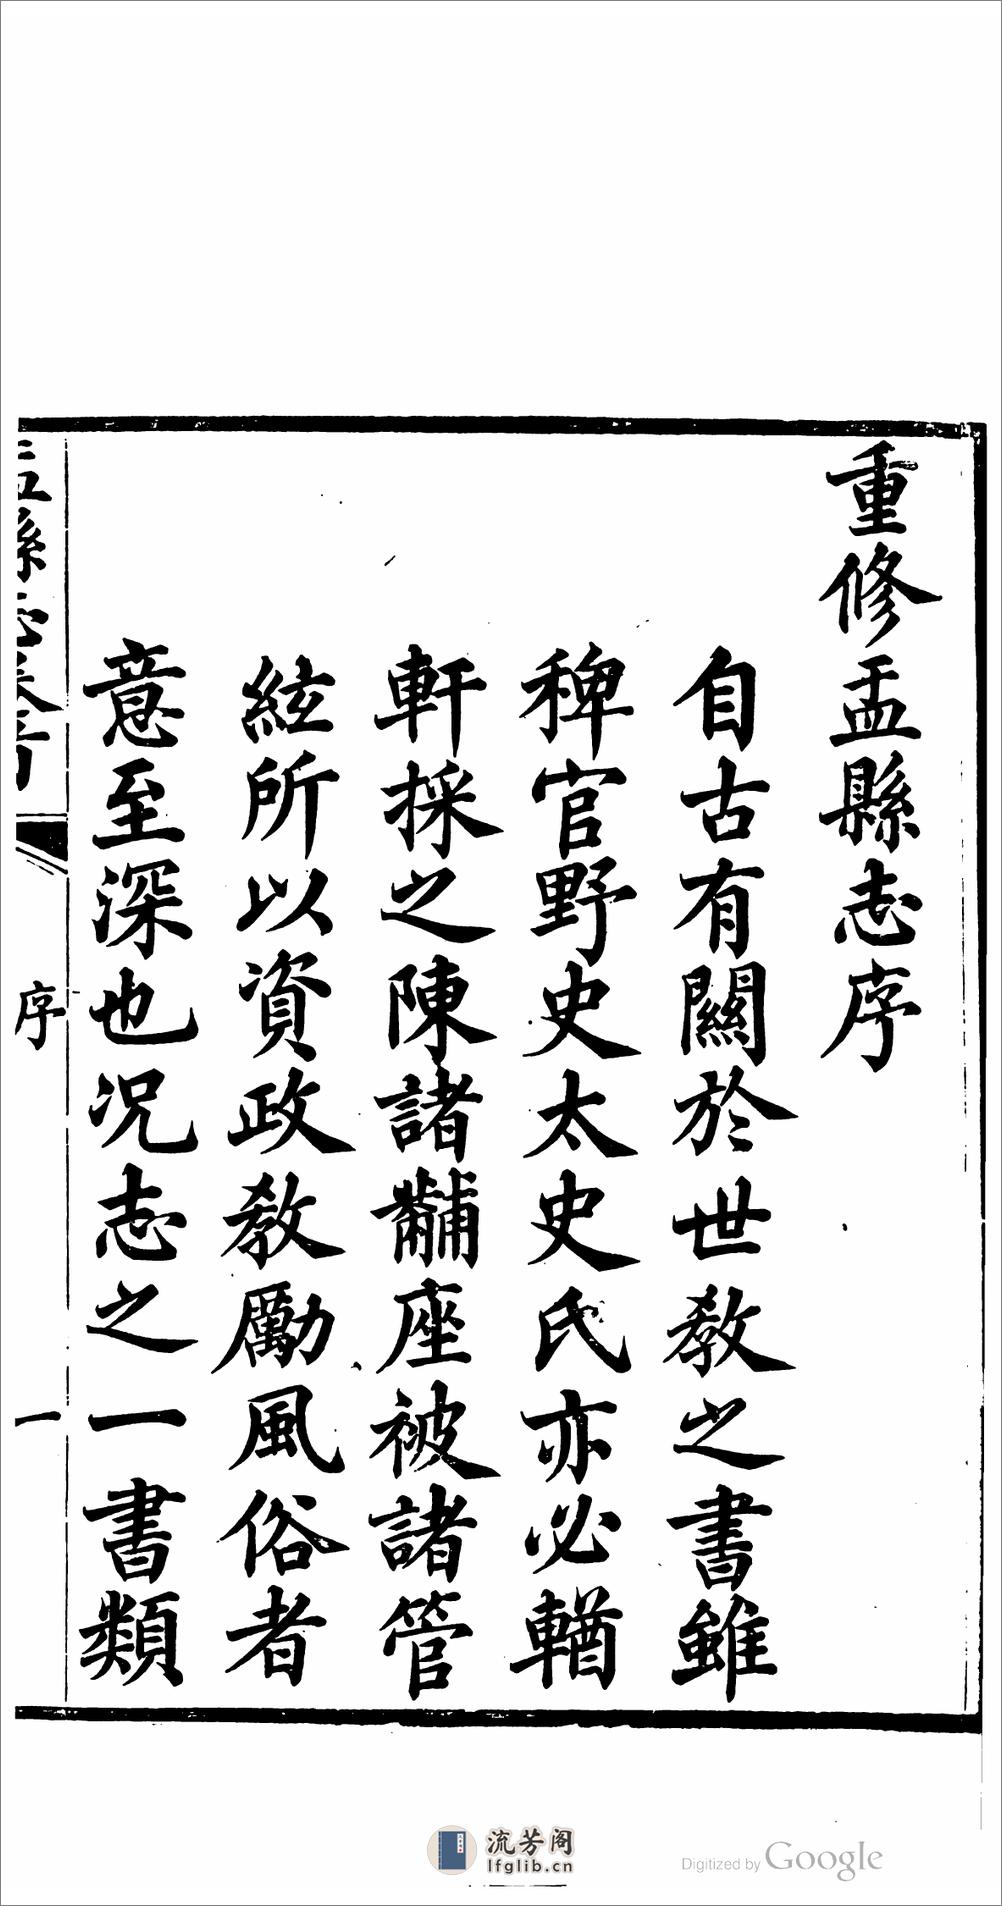 重修盂縣志序
自古有關於世教之書雖
稗官野史太史氏亦必輶
軒採之陳諸黼座被諸管
絃所以資政教勵風俗者
意至深也况志之一書類
盂縣志卷首
序
一
流芳阁
lfglib.cn
Digitized by Google